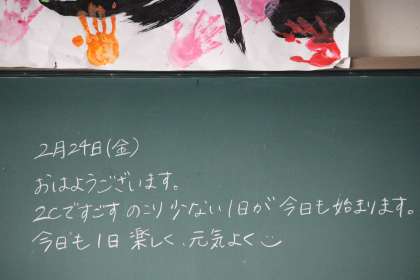 2月24日(金)
おはようございます。
2Cですごす のこり 少ない 1日が 今日も 始まります。
今日も 1日 楽しく、元気よく